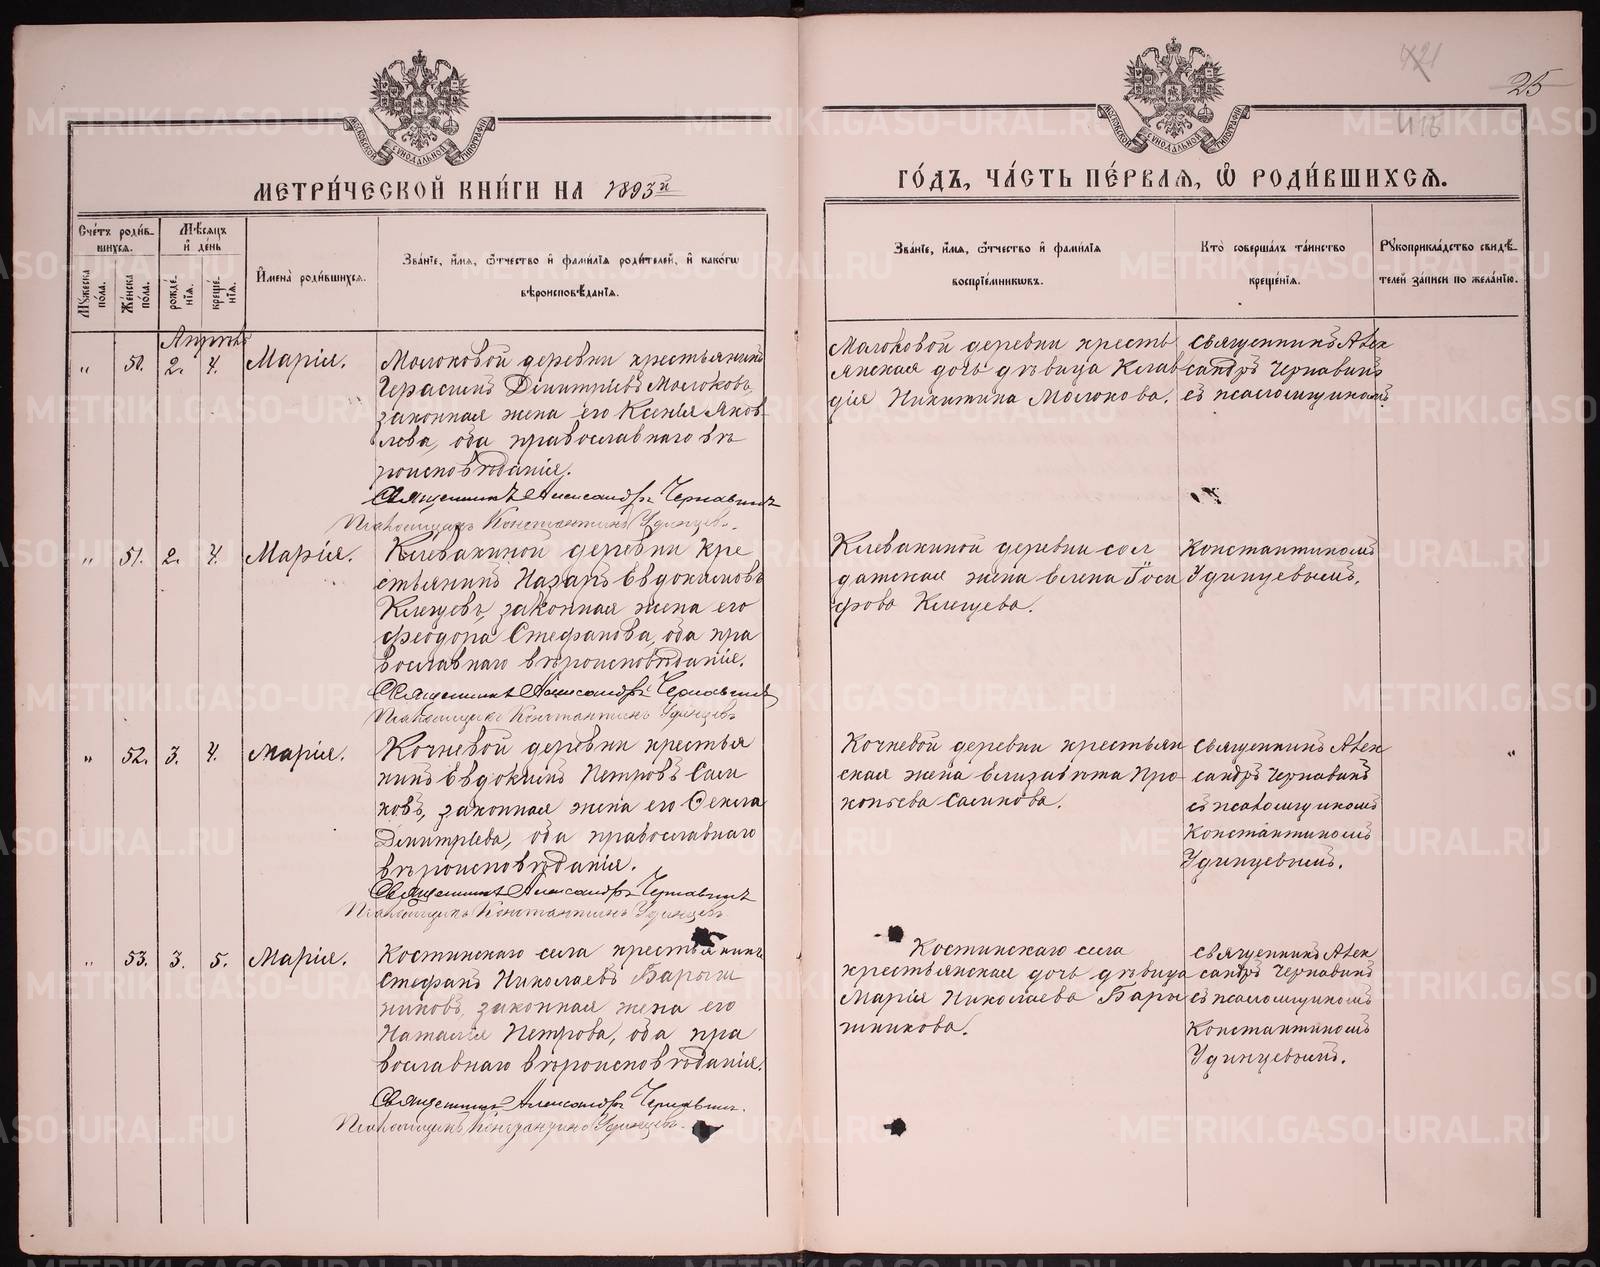 25
МЕТРИ́ЧЕСКОЙ КНИ́ГИ НА 1893й
ГО́ДЪ, ЧА́СТЬ ПЕ́РВАѦ, Ѽ РОДИ́ВШИХСѦ.
Сче́тъ роди́в-
шихсѧ.
Мѣ́сяцъ
и де́нь
Мꙋжеска по́ла.
Же́нска по́ла.
рожде́-
нїѧ.
креще́-
нїѧ.
И҆мена̀ роди́вшихсѧ.
Зва́нїе, и҆́мѧ, ѻ҆́тчество и҆ фамѝлїѧ роди́телей, и҆ како́гѡ
вѣроисповѣ́данїѧ.
Зва́нїе, и҆́мѧ, ѻ҆́тчество и҆ фамѝлїѧ
воспрїе́мникѡвъ.
Кто̀ соверша́лъ та́инство
креще́нїѧ.
Рꙋкоприкла́дство свидѣ́-
телей за́писи по жела́нїю.
Апрѣль
" 50. 2. 4. Марія.
Молоковой деревни крестьянинъ
Герасимъ Димитріевъ Молоковъ,
законная жена его Ксенія Яков
лева, оба православнаго вѣ
роисповѣданія.
Священникъ Александръ Чернавинъ
Псаломщикъ Константинъ Удинцевъ.
Молоковой деревни кресть
янская дочь дѣвица Клав
дія Никитина Молокова.
Священникъ Алек
сандръ Чернавинъ
съ псаломщикомъ
" 51. 2. 4. Марія.
Клевакиной деревни кре
стьянинъ Назаръ Евдокимовъ
Клещевъ, законная жена его
Феодора Стефанова, оба пра
вославнаго вѣроисповѣданія.
Священникъ Александръ Чернавинъ
Псаломщикъ Константинъ Удинцевъ
Клевакиной деревни сол
датская жена Елена Іоси
фова Клещева.
Константиномъ
Удинцевымъ.
" 52. 3. 4. Марія.
Кочневой деревни крестья
нинъ Евдокимъ Петровъ Сали
ковъ, законная жена его Ѳекла
Димитріева, оба православнаго
вѣроисповѣданія.
Священникъ Александръ Чернавинъ
Псаломщикъ Константинъ Удинцевъ
Кочневой деревни крестьян
ская жена Елизавета Про-
копьева Саликова.
Священникъ Алек
сандръ Чернавинъ
съ псаломщикомъ
Константиномъ
Удинцевымъ.
" 53. 3. 5. Марія.
Костинскаго села крестьянинъ
Стефанъ Николаевъ Барыш
никовъ, законная жена его
Наталія Петрова, оба пра
вославнаго вѣроисповѣданія.
Священникъ Александръ Чернавинъ.
Псаломщикъ Константинъ Удинцевъ.
Костинскаго села
крестьянская дочь дѣвица
Марія Николаева Бары
шникова.
Священникъ Алек
сандръ Чернавинъ
съ псаломщикомъ
Константиномъ
Удинцевымъ.
METRIKI.GASO-URAL.RU